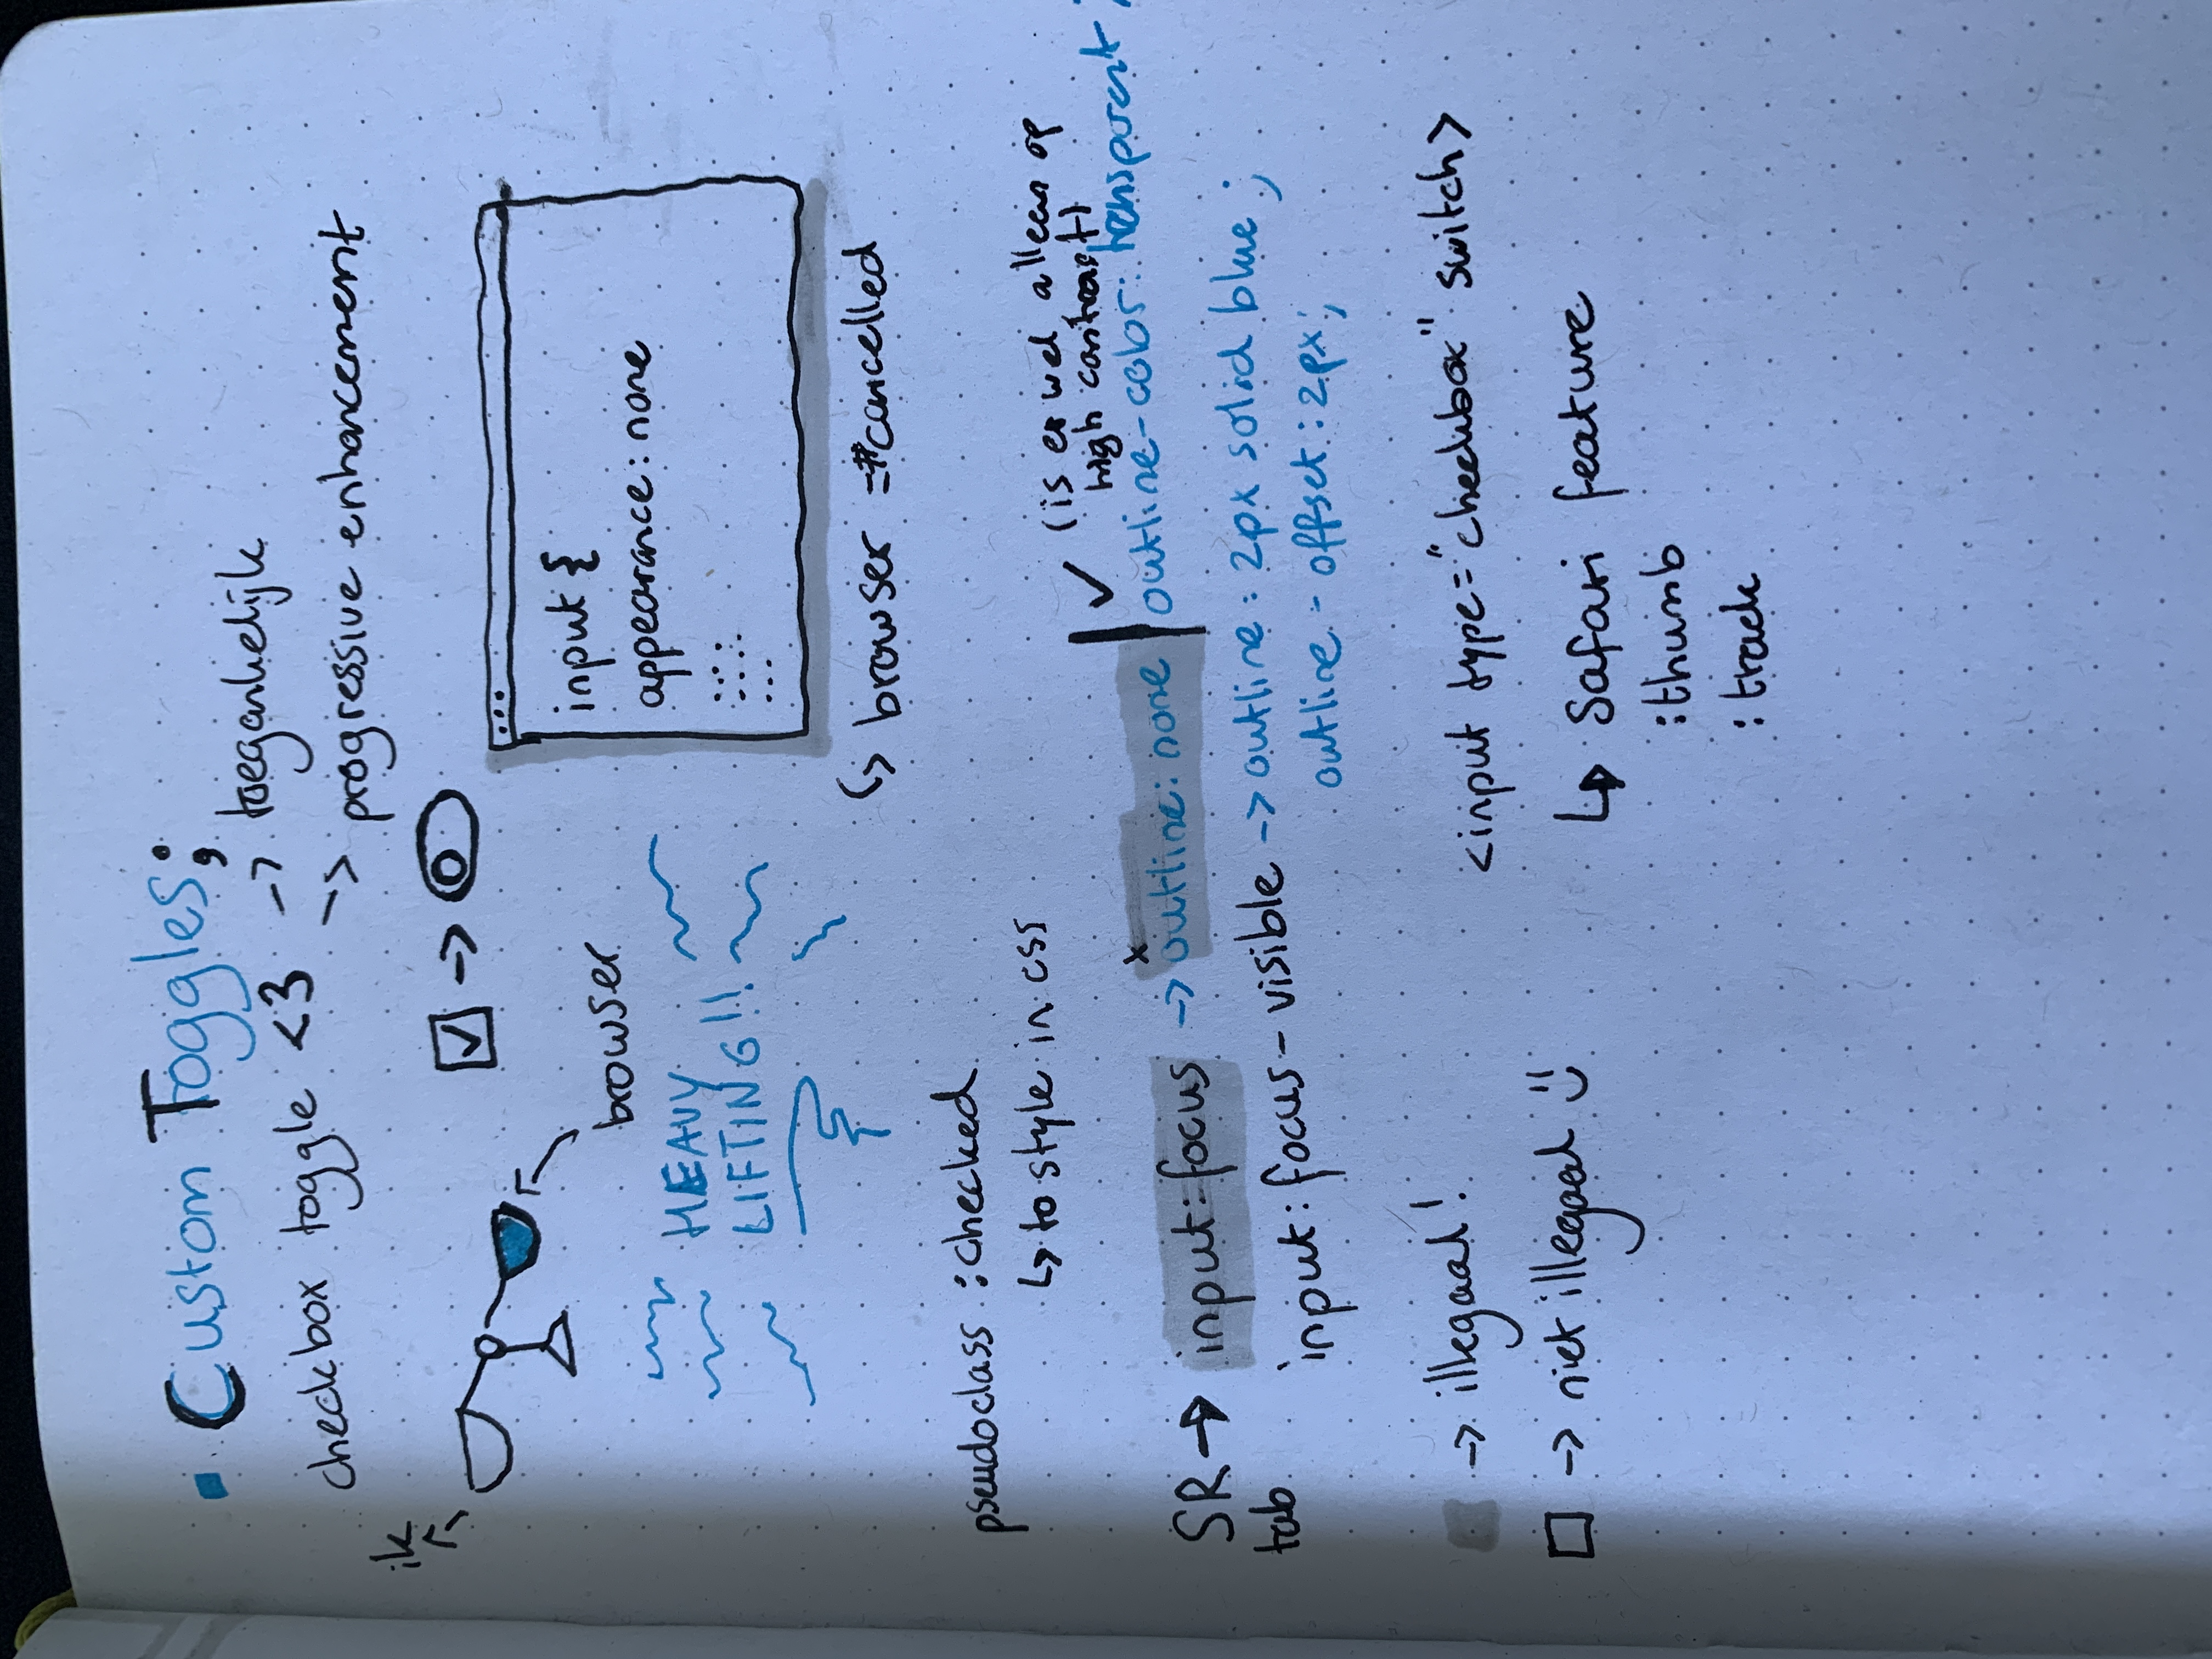 Custom Toggles;
checkbox toggle <3 -> toegankelijk
-> progressive enhancement
ik
browser
HEAVY
LIFTING!!
input {
appearance: none
browser =#cancelled
pseudoclass :checked
to style in css
(is er wel, alleen op
high contrast)
SR → input:focus -> x outline: none | ✓ outline-color: transparent;
tab
input:focus-visible -> outline: 2px solid blue;
outline-offset: 2px;
-> illegaal!
-> niet illegaal
<input type="checkbox" switch>
Safari feature
:thumb
:track